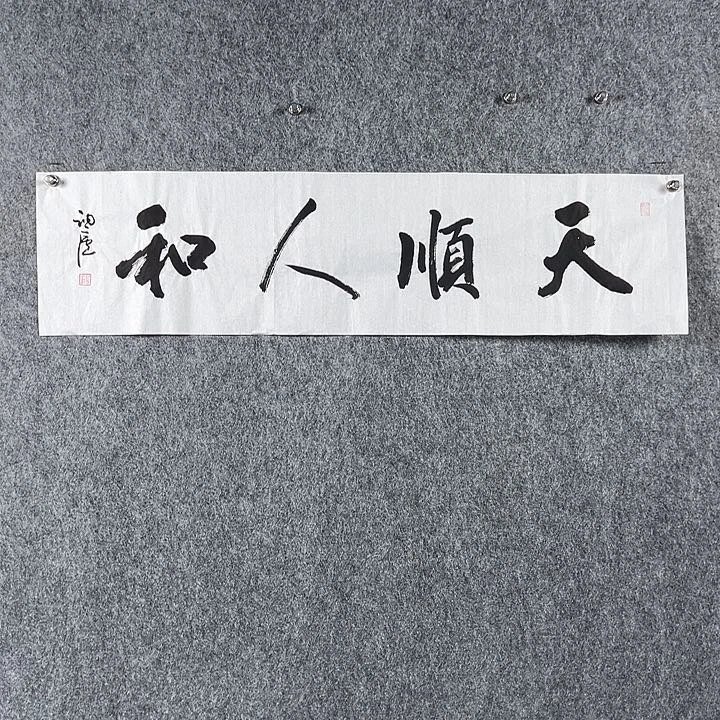 天順人和